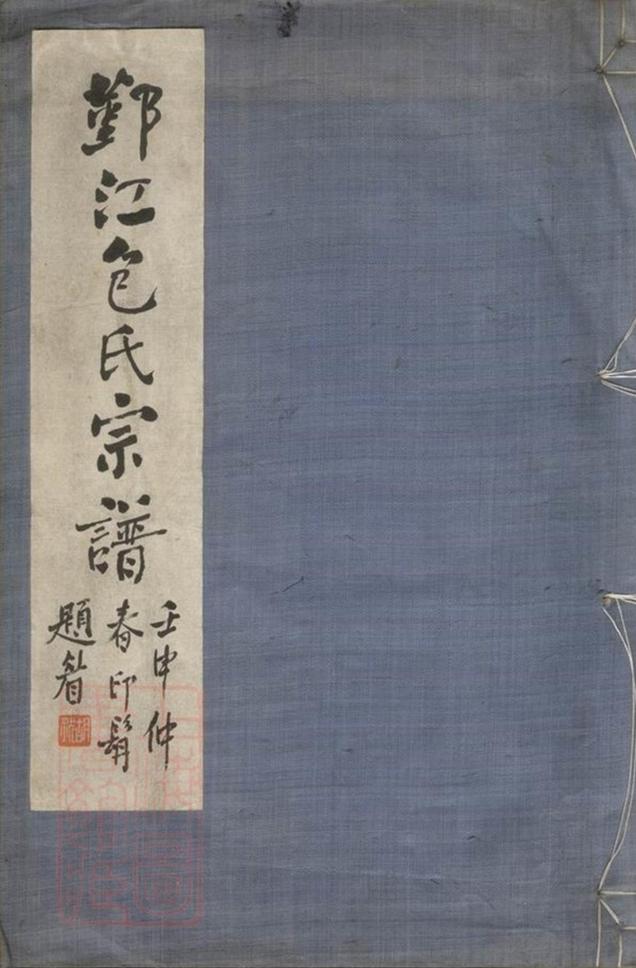 鄞江包氏宗譜
壬申仲
春印髯
題耑